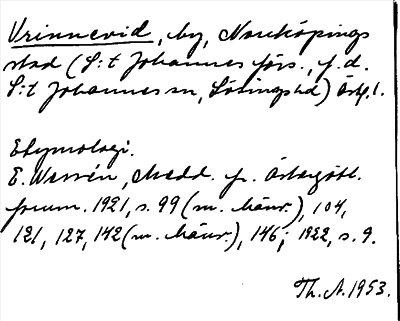 Vrinnevid, by, Norrköpings
stad (S:t Johannes förs., f.d.
S:t Johannes sn, Lösingshd) Östg.l.
Etymologi.
E. Wessén, Medd. fr. Östergötl.
fornm. 1921, s. 99 (m. hänv.), 104,
121, 127, 142 (m. hänv.), 146; 1922, s. 9.
Th. A. 1953.